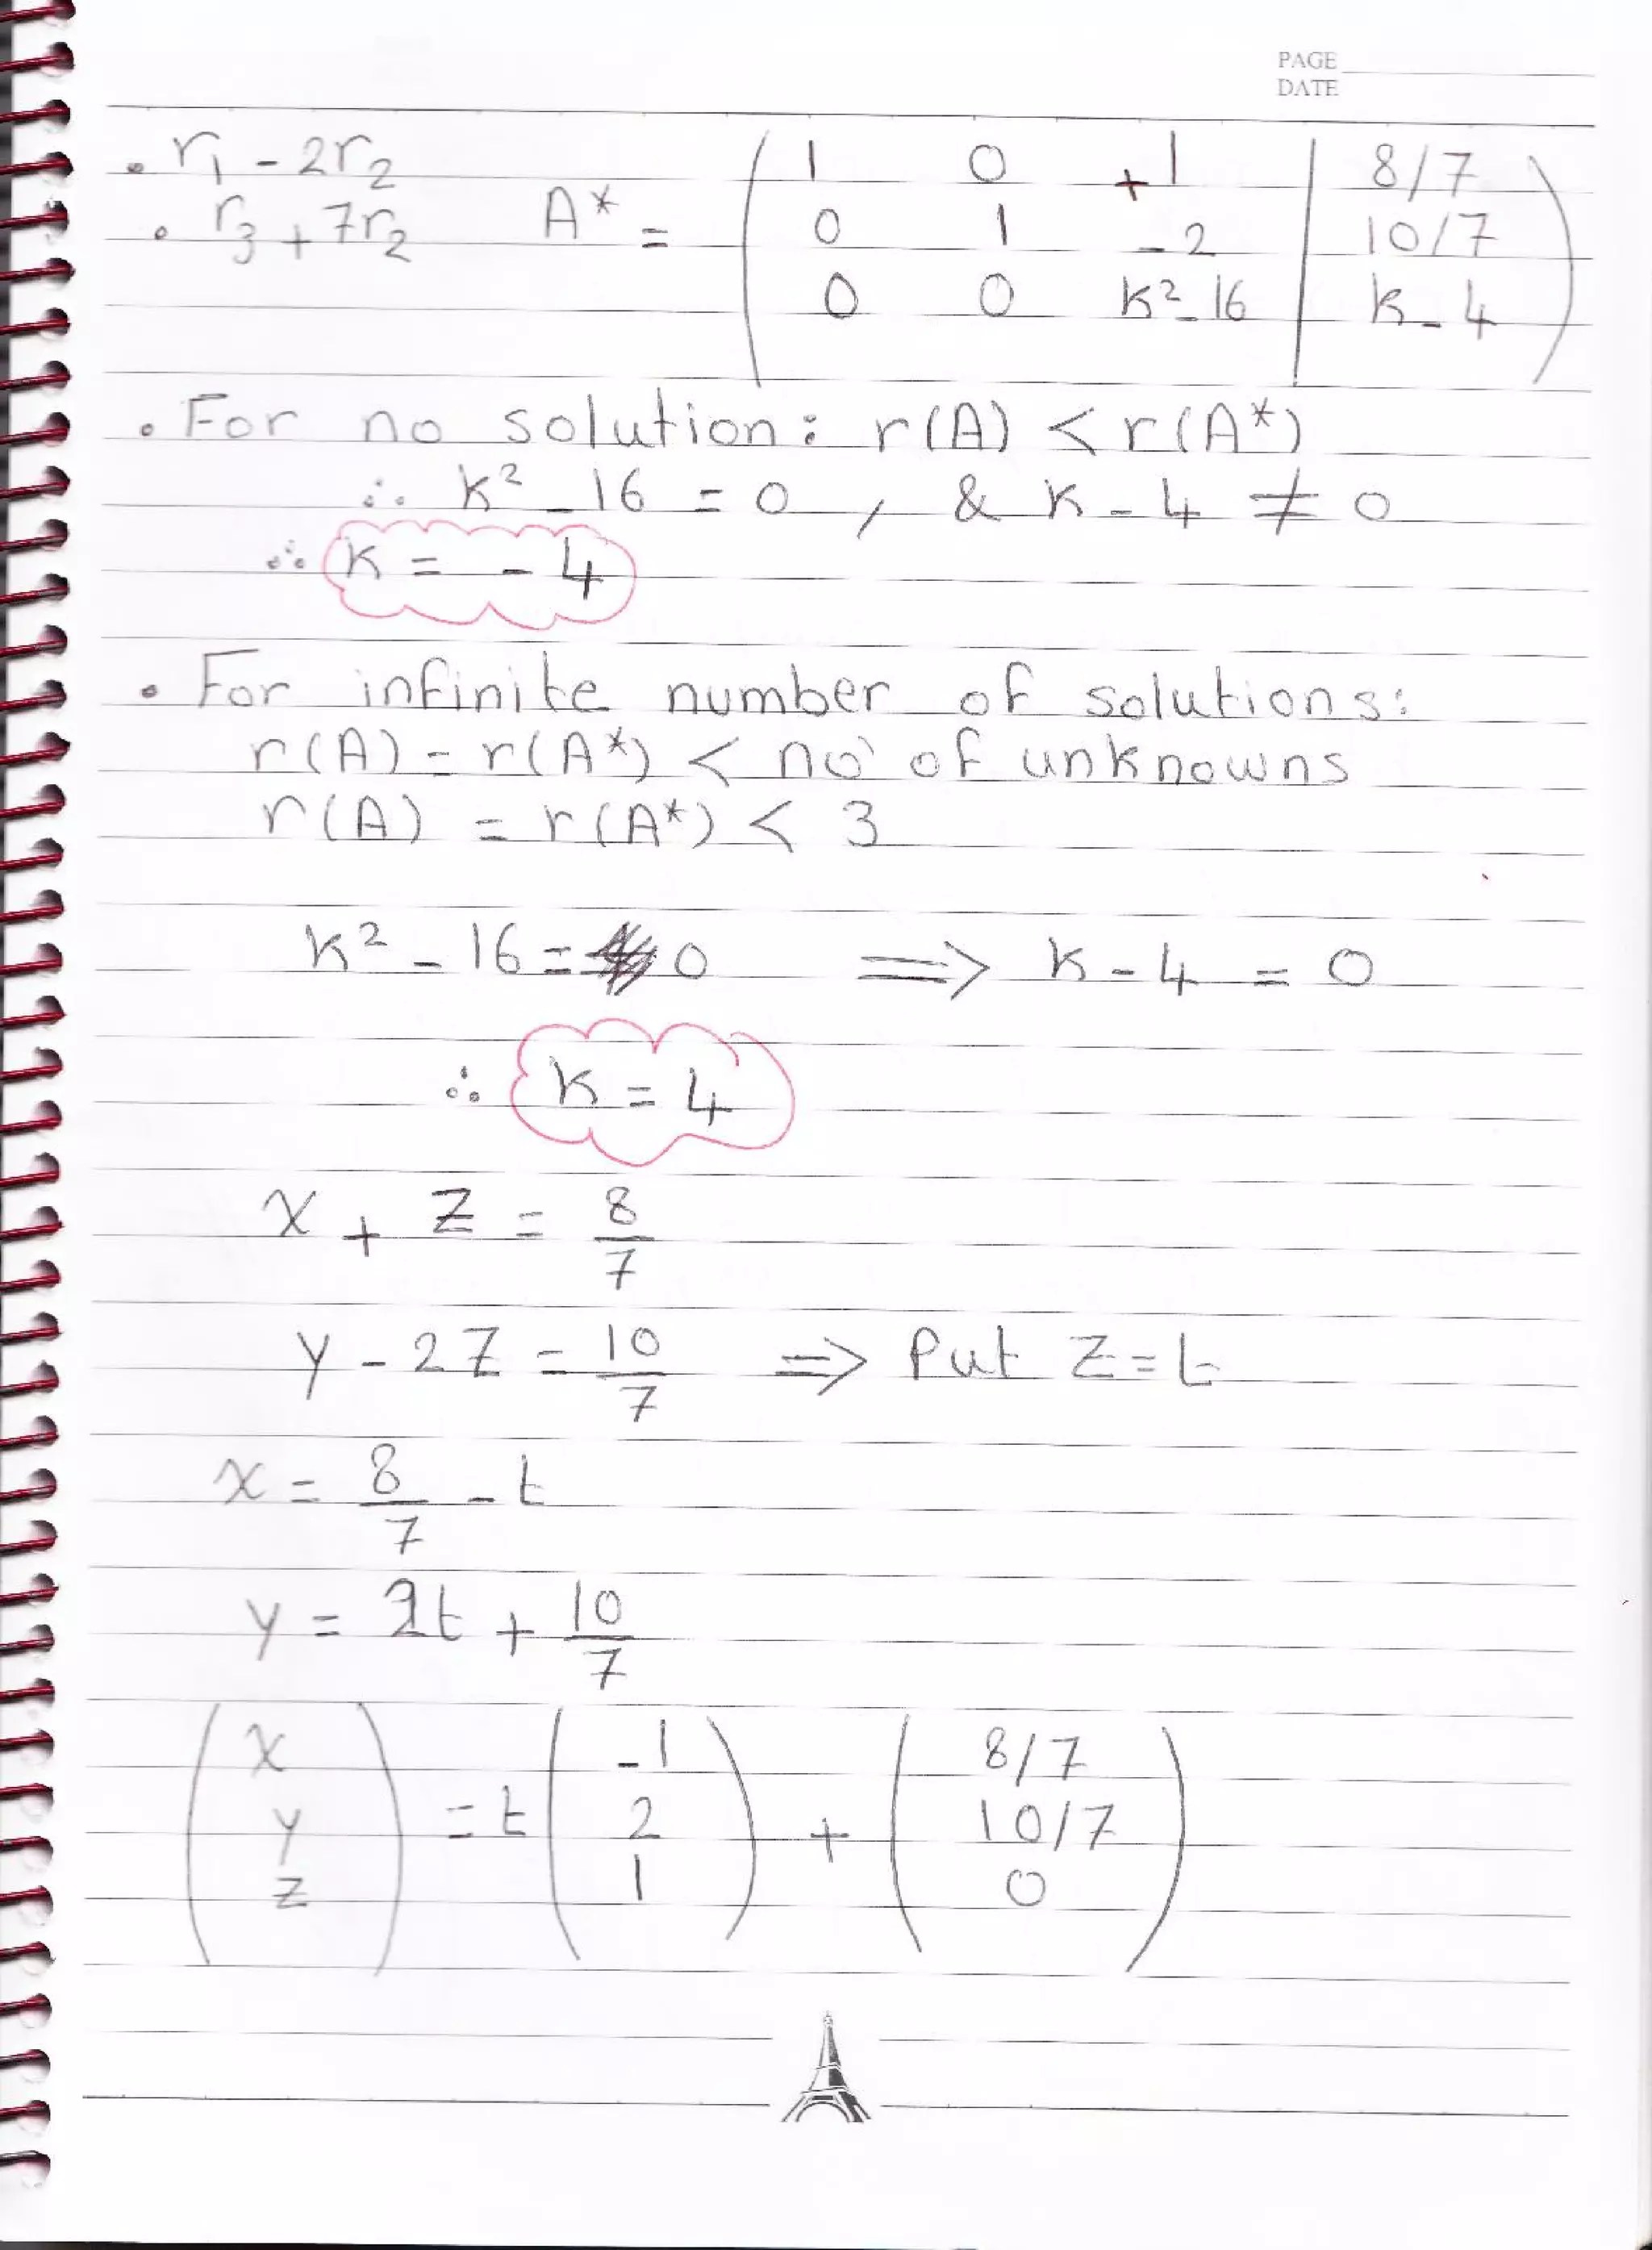 PAGE
DATE
• r₁ - 2r₂
• r₃ + 7r₂ A* = ( 1 0 +1 | 8/7
0 1 -2 | 10/7
0 0 k²-16 | k-4 )
• For no solution: r(A) < r(A*)
∴ k² - 16 = 0 , & k - 4 ≠ 0
∴ k = - 4
• For infinite number of solutions:
r(A) = r(A*) < no of unknowns
r(A) = r(A*) < 3
k² - 16 = 0 ⇒ k - 4 = 0
∴ k = 4
x + z = 8/7
y - 2z = 10/7 ⇒ Put z = t
x = 8/7 - t
y = 2t + 10/7
( x
y
z ) = t ( -1
2
1 ) + ( 8/7
10/7
0 )